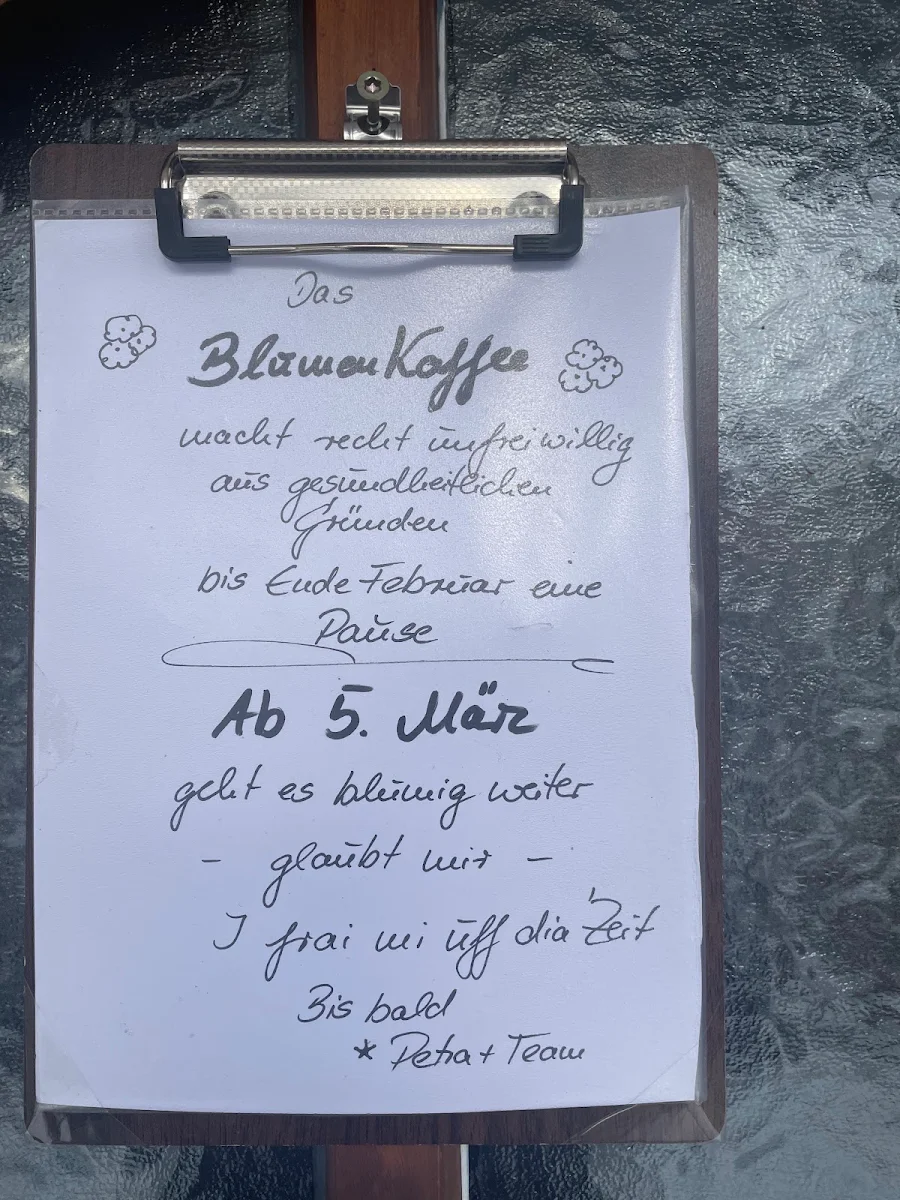 Das
BlumenKaffee
macht recht unfreiwillig
aus gesundheitlichen
Gründen
bis Ende Februar eine
Pause
Ab 5. März
geht es blumig weiter
- glaubt mir -
I frai mi uff dia Zeit
Bis bald
* Petra + Team